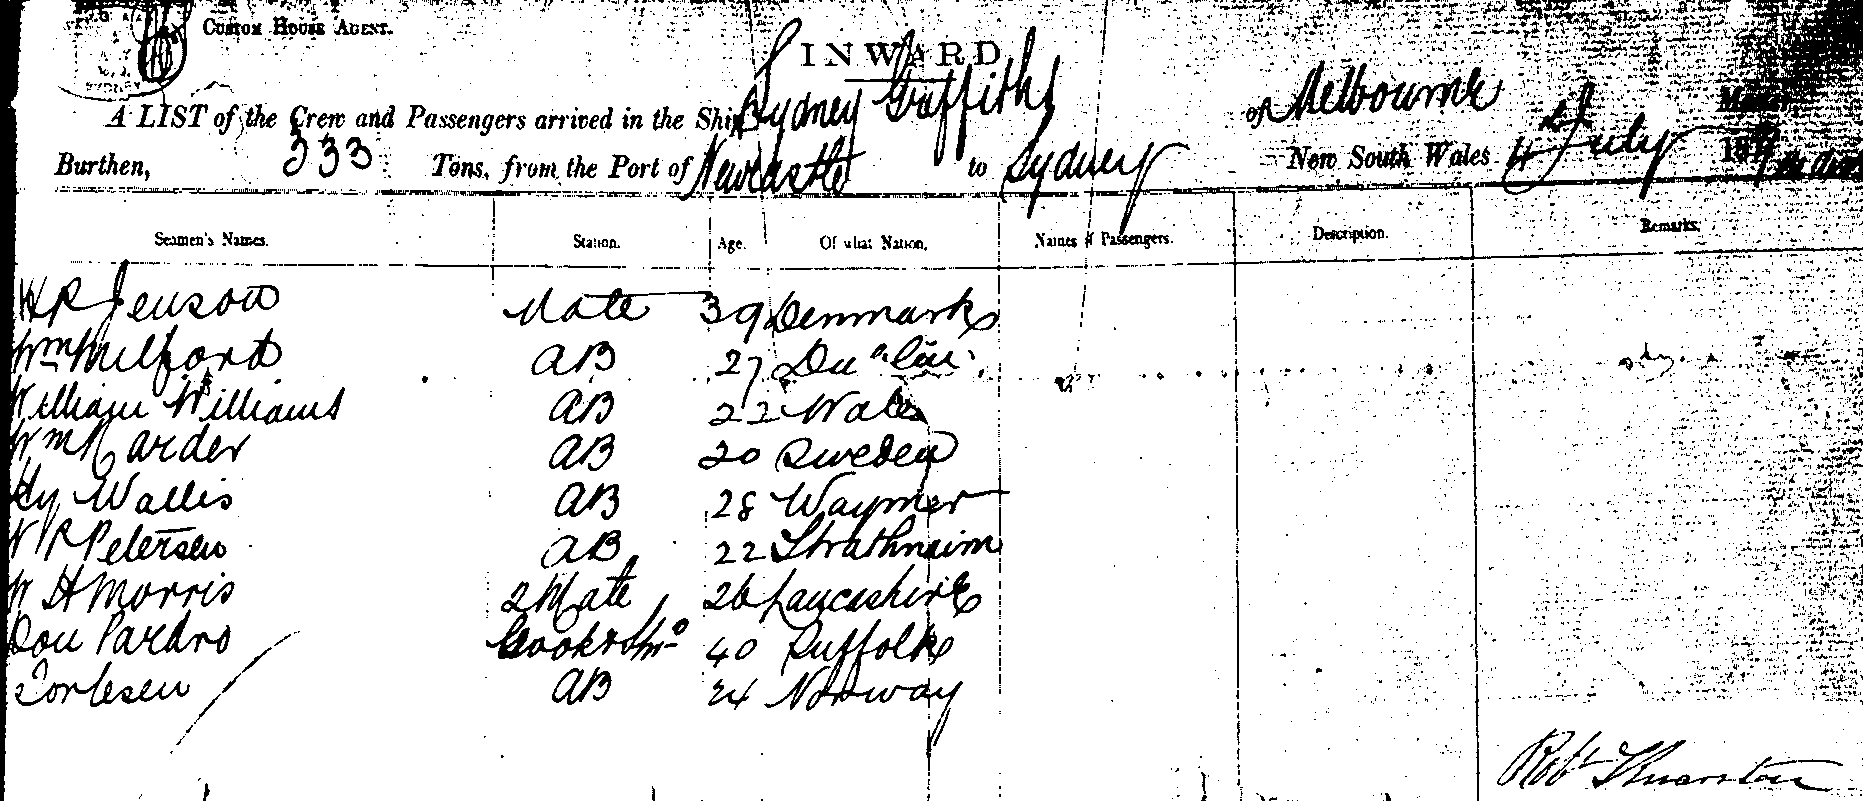 CUSTOM HOUSE AGENT.
INWARD
A LIST of the Crew and Passengers arrived in the Ship Sydney Griffiths of Melbourne
Burthen, 333 Tons, from the Port of Newcastle to Sydney New South Wales 4 July 18
Seamen's Names. Station. Age. Of what Nation. Names of Passengers. Description. Remarks.
H P Jenson Mate 39 Denmark
Wm Milford AB 27
William Williams AB 22 Wales
Wm AB 20 Sweden
Hy Wallis AB 28
P Petersen AB 22
W H Morris 2 Mate 26 Lancashire
Pardro Cook & 40 Suffolk
AB 24 Norway
Robt Thurston